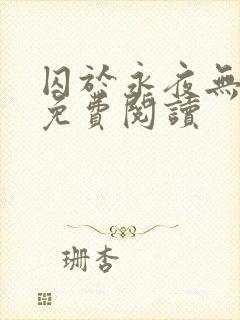 囚於永夜無
免費閱讀
珊杏